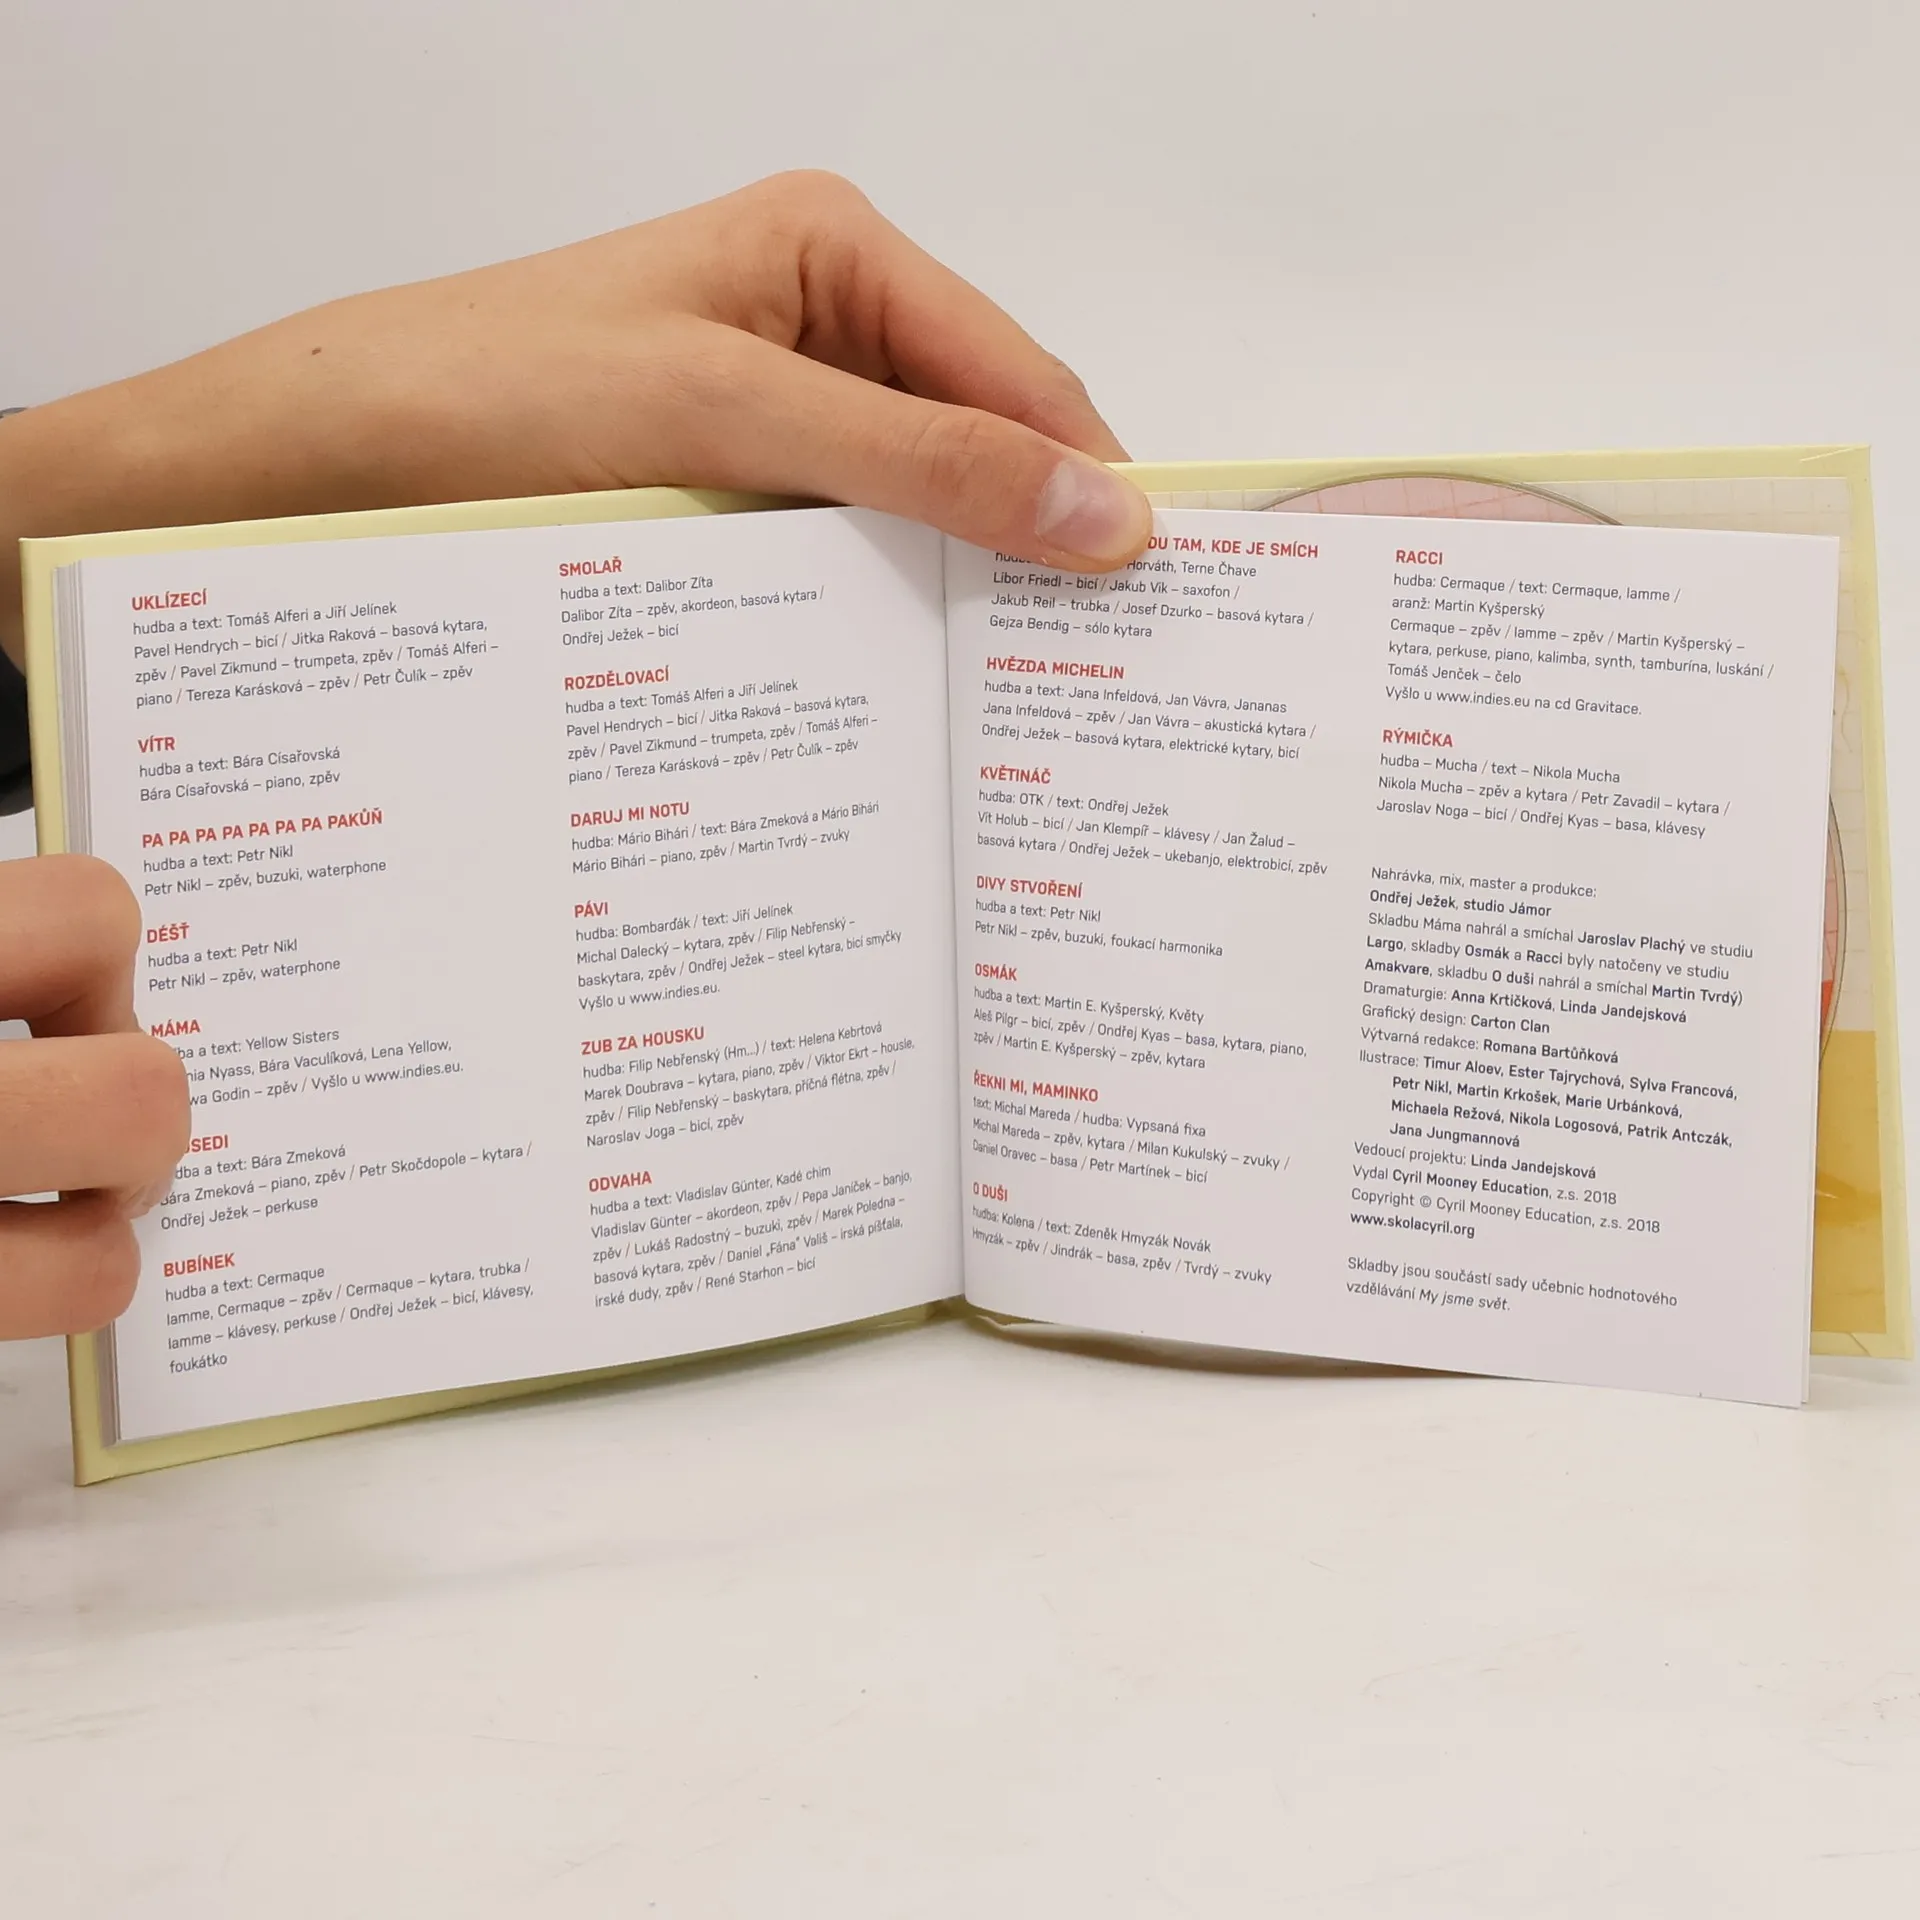 UKLÍZECÍ
hudba a text: Tomáš Alferi a Jiří Jelínek
Pavel Hendrych – bicí / Jitka Raková – basová kytara,
zpěv / Pavel Zikmund – trumpeta, zpěv / Tomáš Alferi –
piano / Tereza Karásková – zpěv / Petr Čulík – zpěv
VÍTR
hudba a text: Bára Císařovská
Bára Císařovská – piano, zpěv
PA PA PA PA PA PA PA PAKŮŇ
hudba a text: Petr Nikl
Petr Nikl – zpěv, buzuki, waterphone
DÉŠŤ
hudba a text: Petr Nikl
Petr Nikl – zpěv, waterphone
MÁMA
a text: Yellow Sisters
Nyass, Bára Vaculíková, Lena Yellow,
Godin – zpěv / Vyšlo u www.indies.eu.
a text: Bára Zmeková
Bára Zmeková – piano, zpěv / Petr Skočdopole – kytara /
Ondřej Ježek – perkuse
BUBÍNEK
hudba a text: Cermaque
lamme, Cermaque – zpěv / Cermaque – kytara, trubka /
lamme – klávesy, perkuse / Ondřej Ježek – bicí, klávesy,
foukátko
SMOLAŘ
hudba a text: Dalibor Zíta
Dalibor Zíta – zpěv, akordeon, basová kytara /
Ondřej Ježek – bicí
ROZDĚLOVACÍ
hudba a text: Tomáš Alferi a Jiří Jelínek
Pavel Hendrych – bicí / Jitka Raková – basová kytara,
zpěv / Pavel Zikmund – trumpeta, zpěv / Tomáš Alferi –
piano / Tereza Karásková – zpěv / Petr Čulík – zpěv
DARUJ MI NOTU
hudba: Mário Bihári / text: Bára Zmeková a Mário Bihári
Mário Bihári – piano, zpěv / Martin Tvrdý – zvuky
PÁVI
hudba: Bombarďák / text: Jiří Jelínek
Michal Dalecký – kytara, zpěv / Filip Nebřenský –
baskytara, zpěv / Ondřej Ježek – steel kytara, bicí smyčky
Vyšlo u www.indies.eu.
ZUB ZA HOUSKU
hudba: Filip Nebřenský (Hm...) / text: Helena Kebrtová
Marek Doubrava – kytara, piano, zpěv / Viktor Ekrt – housle,
zpěv / Filip Nebřenský – baskytara, příčná flétna, zpěv /
Naroslav Joga – bicí, zpěv
ODVAHA
hudba a text: Vladislav Günter, Kadé chim
Vladislav Günter – akordeon, zpěv / Pepa Janíček – banjo,
zpěv / Lukáš Radostný – buzuki, zpěv / Marek Poledna –
basová kytara, zpěv / Daniel „Fána“ Vališ – irská píšťala,
irské dudy, zpěv / René Starhon – bicí
TAM, KDE JE SMÍCH
Horváth, Terne Čhave
Libor Friedl – bicí / Jakub Vik – saxofon /
Jakub Reil – trubka / Josef Dzurko – basová kytara /
Gejza Bendig – sólo kytara
HVĚZDA MICHELIN
hudba a text: Jana Infeldová, Jan Vávra, Jananas
Jana Infeldová – zpěv / Jan Vávra – akustická kytara /
Ondřej Ježek – basová kytara, elektrické kytary, bicí
KVĚTINÁČ
hudba: OTK / text: Ondřej Ježek
Vít Holub – bicí / Jan Klempíř – klávesy / Jan Žalud –
basová kytara / Ondřej Ježek – ukebanjo, elektrobicí, zpěv
DIVY STVOŘENÍ
hudba a text: Petr Nikl
Petr Nikl – zpěv, buzuki, foukací harmonika
OSMÁK
hudba a text: Martin E. Kyšperský, Květy
Aleš Pilgr – bicí, zpěv / Ondřej Kyas – basa, kytara, piano,
zpěv / Martin E. Kyšperský – zpěv, kytara
ŘEKNI MI, MAMINKO
text: Michal Mareda / hudba: Vypsaná fixa
Michal Mareda – zpěv, kytara / Milan Kukulský – zvuky /
Daniel Oravec – basa / Petr Martínek – bicí
O DUŠI
hudba: Kolena / text: Zdeněk Hmyzák Novák
Hmyzák – zpěv / Jindrák – basa, zpěv / Tvrdý – zvuky
RACCI
hudba: Cermaque / text: Cermaque, lamme /
aranž: Martin Kyšperský
Cermaque – zpěv / lamme – zpěv / Martin Kyšperský –
kytara, perkuse, piano, kalimba, synth, tamburína, luskání /
Tomáš Jenček – čelo
Vyšlo u www.indies.eu na cd Gravitace.
RÝMIČKA
hudba – Mucha / text – Nikola Mucha
Nikola Mucha – zpěv a kytara / Petr Zavadil – kytara /
Jaroslav Noga – bicí / Ondřej Kyas – basa, klávesy
Nahrávka, mix, master a produkce:
Ondřej Ježek, studio Jámor
Skladbu Máma nahrál a smíchal Jaroslav Plachý ve studiu
Largo, skladby Osmák a Racci byly natočeny ve studiu
Amakvare, skladbu O duši nahrál a smíchal Martin Tvrdý)
Dramaturgie: Anna Krtičková, Linda Jandejsková
Grafický design: Carton Clan
Výtvarná redakce: Romana Bartůňková
Ilustrace: Timur Aloev, Ester Tajrychová, Sylva Francová,
Petr Nikl, Martin Krkošek, Marie Urbánková,
Michaela Režová, Nikola Logosová, Patrik Antczák,
Jana Jungmannová
Vedoucí projektu: Linda Jandejsková
Vydal Cyril Mooney Education, z.s. 2018
Copyright © Cyril Mooney Education, z.s. 2018
www.skolacyril.org
Skladby jsou součástí sady učebnic hodnotového
vzdělávání My jsme svět.